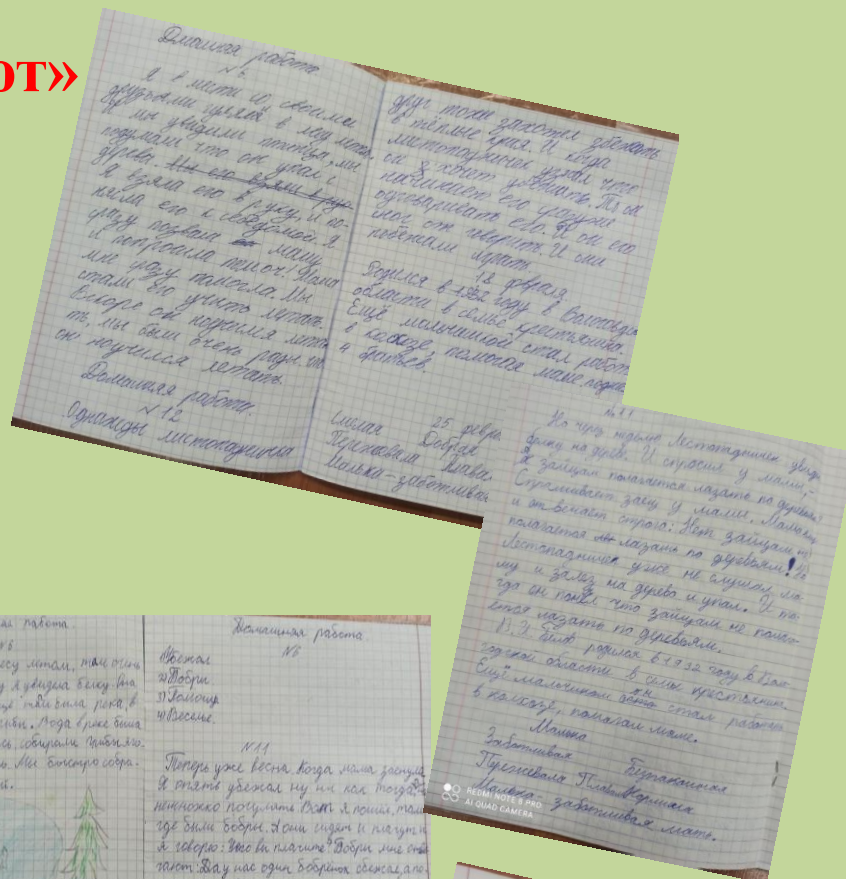 от»
Дмашная работа
№6
Я в месте со своими
друзьями гуляла в
И мы увидели птенца, мы
подумали что он упал с
дерева.
Я взяла его в руку, и по-
няла его к себе домой. Я
сразу позвала маму
и попросила помоч! Мама
мне сразу помогла. Мы
стали его учить летать.
Вскоре он научился лета
ть, мы были очень рады что
он научился летать.
Домашняя работа.
№12
Однажды листопадничка
друг тоже захотел збежать
в тёплые края. И когда
листопадничек узнал что
он хочит убежать. То он
начинает его сразу же
отговаривать его. И он его
смог от говорить. И они
побежали играть.
18 февраля.
Родился в 1932 году в Вологодск
области в семье крестьянина.
Ещё мальчишкой стал работ
в колхозе помогая маме поднят
4 братьев.
Смелая 25 февра
Переживала Добрая
Малька-заботлива
№11
Но через неделю Листопадничек увид
белку на дереве. И спросил у мамы,-
А зайцам полагается лазать по деревьям?
Спрашивает заец у мамы. Мама ему
и отвечает строго: Нет зайцам не
полагается лазать по деревьям!
Листопадничек уже не слушал ма-
му и залез на дерево и упал. И то-
гда он понял что зайцам не полаг-
ается лазать по деревьям.
В.И Белов родился в 1932 году в Воло-
годской области в семье крестьянина.
Ещё мальчиком стал работать
в колхозе, помогал маме.
Малька
Заботливая
Переживала Плавала Кормила
Малька - заботливая мать.
REDMI NOTE 8 PRO
AI QUAD CAMERA
ая работа.
№6
есу летом, там очень
у я увидела белку. Она
ещё там была река, в
рыбы. Вода в реке была
сь, собирали грибы яго-
ь. Мы быстро собра-
Домашняя работа
№6
1) Бежал
2) Бобры
3) Помощь
4) Веселье.
№11
Теперь уже весна. Когда мама заснула
Я опять убежал ну ни как тогда, а
немножко погулять. Вот я пошёл, там
где были бобры. А они сидят и плачут и
я говорю: Что вы плачите? Бобры мне отве
чают: Да у нас один бобрёнок сбежал, а по-